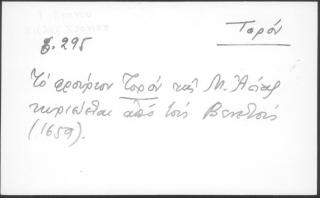 Ταρόν
σ. 295
Τό φρούριον Ταρόν τῆς Μ. Ἀσίας
κυριεύεται ἀπό τούς Βενετούς
(1659).